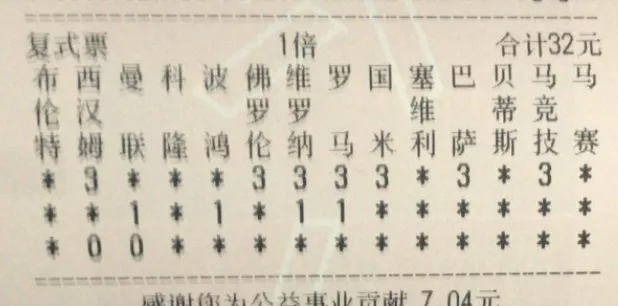 复式票 1倍 合计32元
布 西 曼 科 波 佛 维 罗 国 塞 巴 贝 马 马
伦 汉 罗 罗 维 蒂 竞
特 姆 联 隆 鸿 伦 纳 马 米 利 萨 斯 技 赛
* 3 * * * 3 3 3 3 * 3 * 3 *
* * 1 * 1 * 1 1 * * * * * *
* 0 0 * * * * * * * * * * *
感谢您为公益事业贡献 7.04元